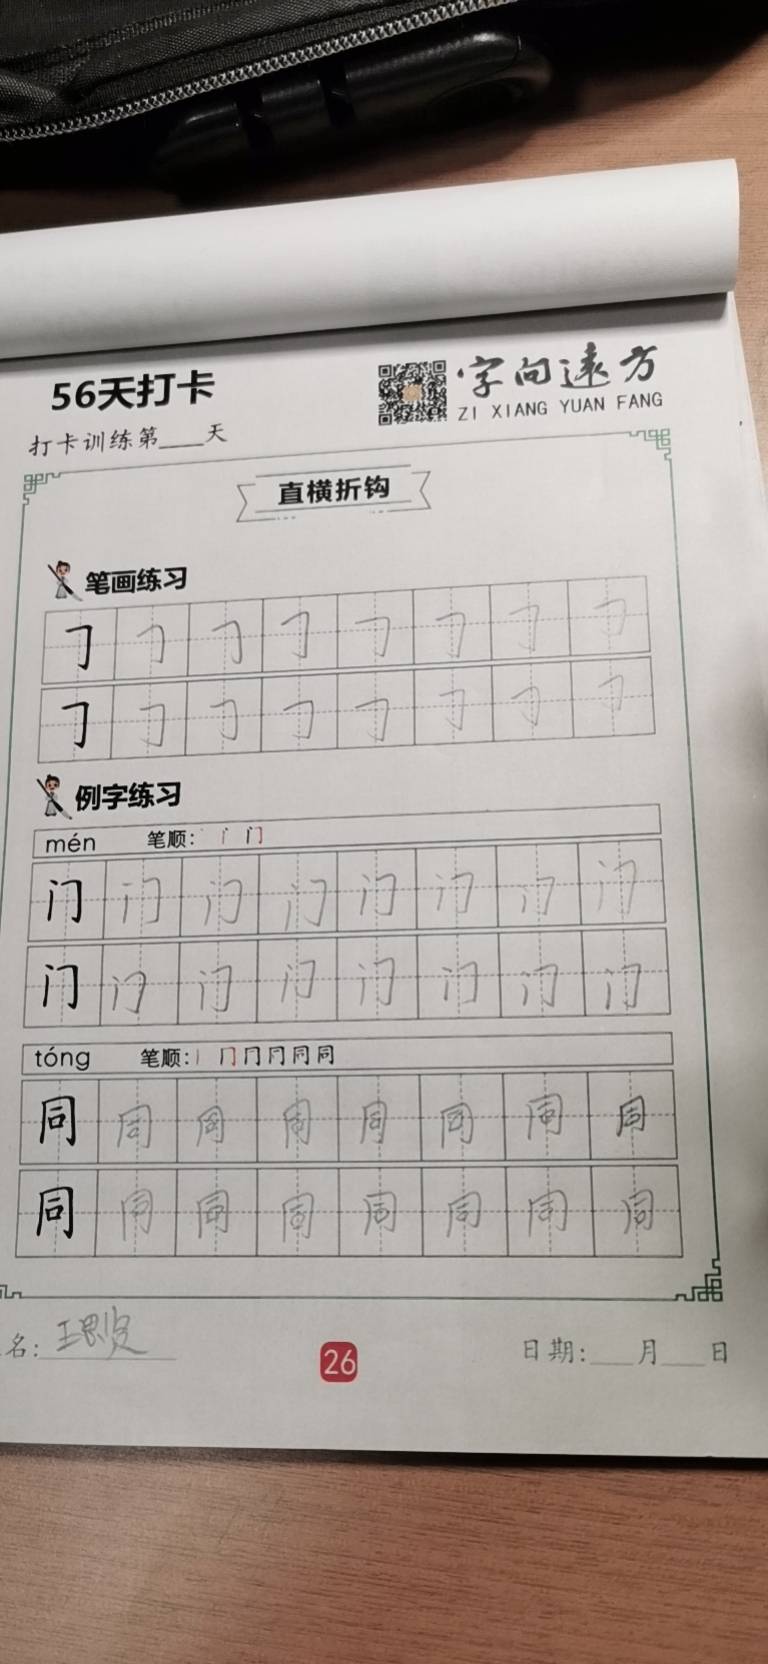 56天打卡
字向远方
ZI XIANG YUAN FANG
打卡训练第____天
直横折钩
笔画练习
𠃌 𠃌 𠃌 𠃌 𠃌 𠃌 𠃌 𠃌
𠃌 𠃌 𠃌 𠃌 𠃌 𠃌 𠃌 𠃌
例字练习
mén 笔顺: 门
门 门 门 门 门 门 门 门
门 门 门 门 门 门 门 门
tóng 笔顺: 同
同 同 同 同 同 同 同 同
同 同 同 同 同 同 同 同
名:
26
日期:____月____日